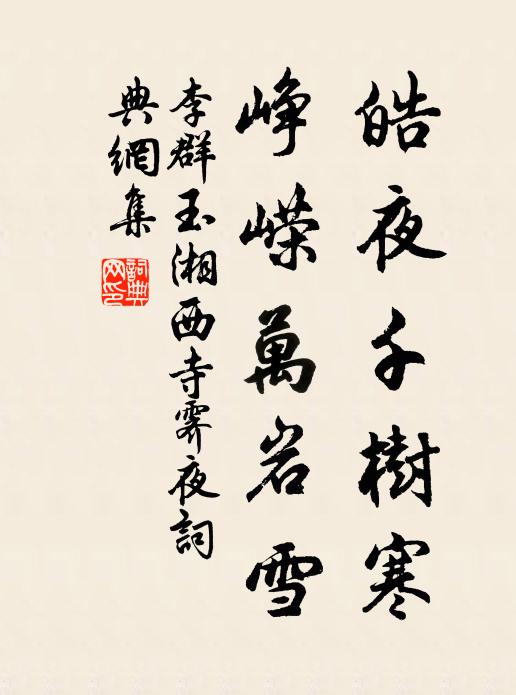 皓夜千樹寒
峥嶸萬岩雪
李群玉湘西寺霽夜詞
典網集
詞典
网印